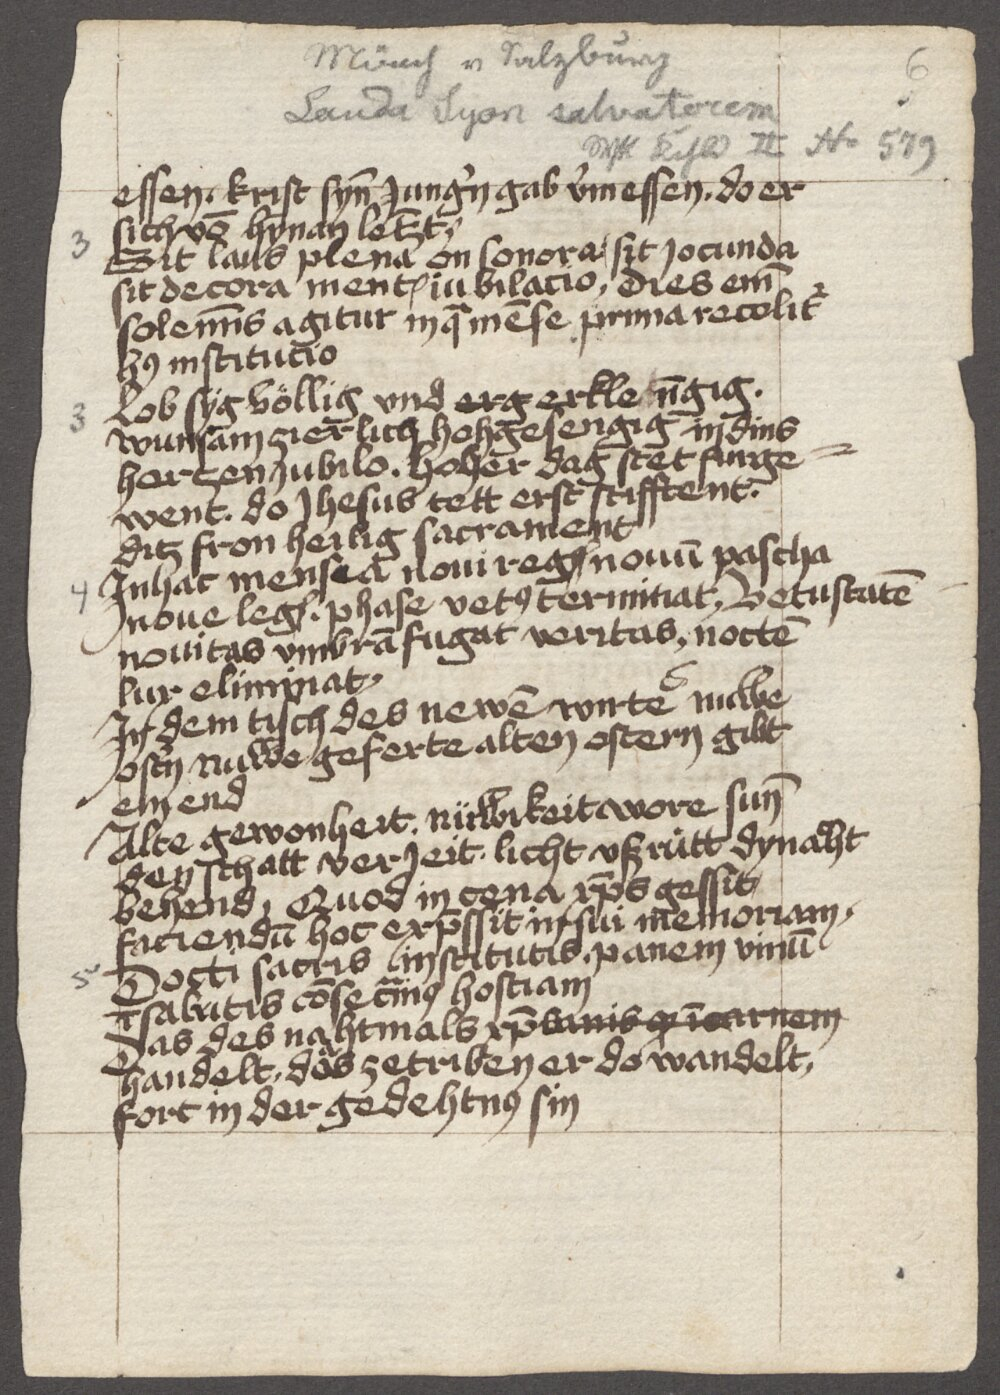 Mönch v Salzburg
6
Lauda Syon salvatorem
II No 579
essen. krist syn̄ Jung'n gab v̓m essen. do er
3 sich vō hynan letzt,
Sit laus plena on sonora sit jocunda
sit decora mentꝭ iubilacio, Dies em̄
solem̄is agitur in q̄ mēse prima recolit᷑
hꝰ institutio
3 Lob syg völlig vnd erg erkle n̄gig.
wunsam zierlich hohgesengig in dins
hertzen Jubilo. hoher dag stet furge=
went. do Jhesus tett erst stifftent.
ditz fron heilig sacrament
4 Inhac mensea noui regꝭ nouū pascha
noue legꝭ. phase vetꝰ terminat, Vetustatē
nouitas vmbrā fugat veritas, noctē
lux eliminat,
In dem tisch des newē wirtes nuwe
ostn̄ nuwe geferte alten ostern gibt
ein end
Alte gewonheit. nüwikeit wore sun̄
den schatt verjeit. licht vszrütt dy naht
behend, Quod in cena xp̄s gessit
faciendū hoc exp̄ssit in sui memoriam,
5 Docti sacris institutis panem vinū
ī salutis cōsecram̄ꝰ hostiam
Das des nahtmals xp̄s
handelt, das zetriben er do wandelt,
fort in der gedehtnꝰ sin